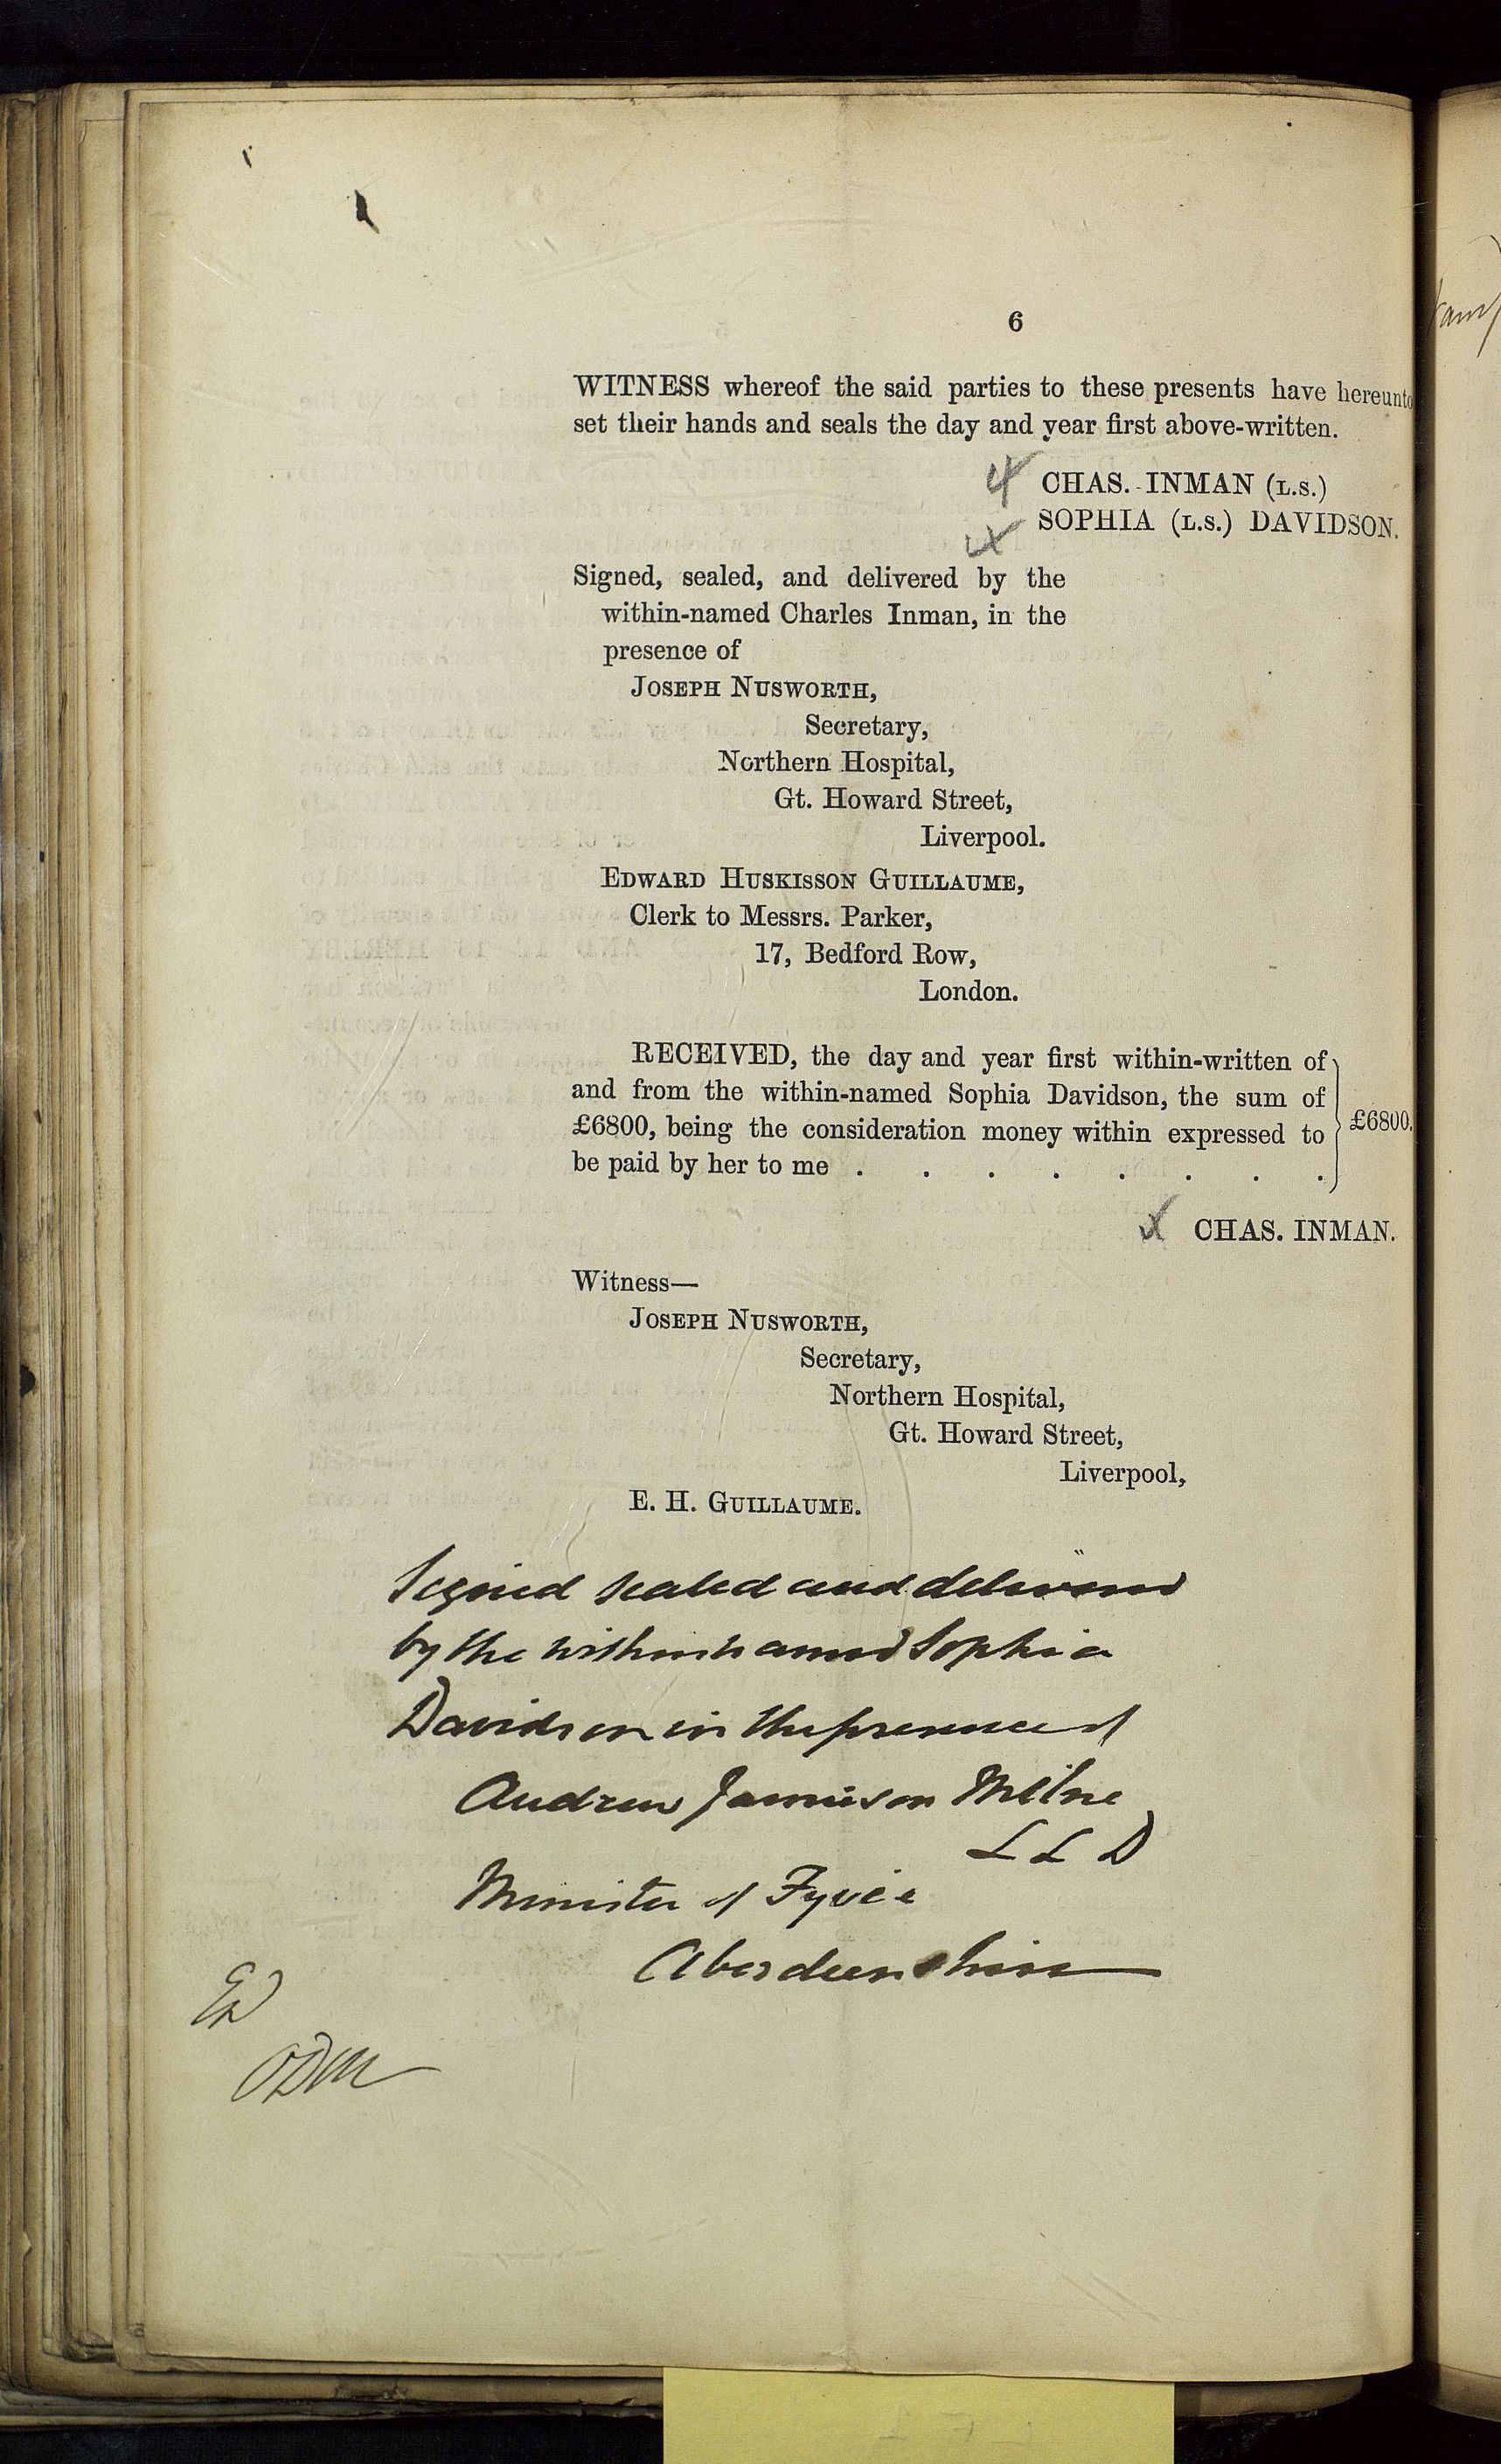 6
WITNESS whereof the said parties to these presents have hereunto
set their hands and seals the day and year first above-written.
CHAS. INMAN (L.S.)
SOPHIA (L.S.) DAVIDSON.
Signed, sealed, and delivered by the
within-named Charles Inman, in the
presence of
JOSEPH NUSWORTH,
Secretary,
Northern Hospital,
Gt. Howard Street,
Liverpool.
EDWARD HUSKISSON GUILLAUME,
Clerk to Messrs. Parker,
17, Bedford Row,
London.
RECEIVED, the day and year first within-written of
and from the within-named Sophia Davidson, the sum of
£6800, being the consideration money within expressed to
be paid by her to me . . . . . . . .
£6800.
CHAS. INMAN.
Witness—
JOSEPH NUSWORTH,
Secretary,
Northern Hospital,
Gt. Howard Street,
Liverpool,
E. H. GUILLAUME.
Signed sealed and delivered
by the within named Sophia
Davidson in the presence of
Andrew Jamieson Milne
L L D
Minister of Fyvie
Aberdeenshire